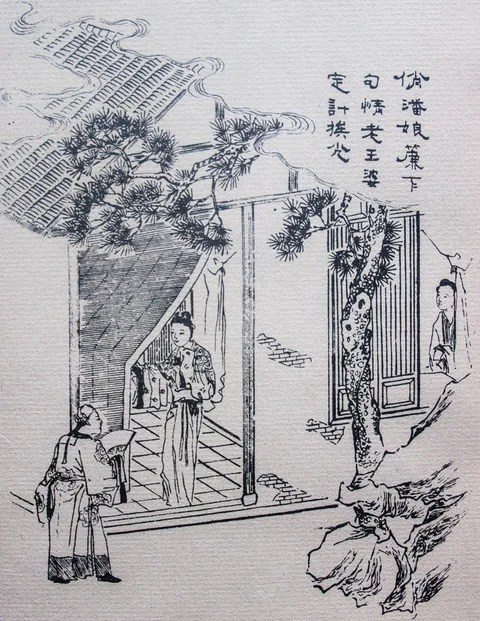 俏潘娘簾下
句情老王婆
定計挨光